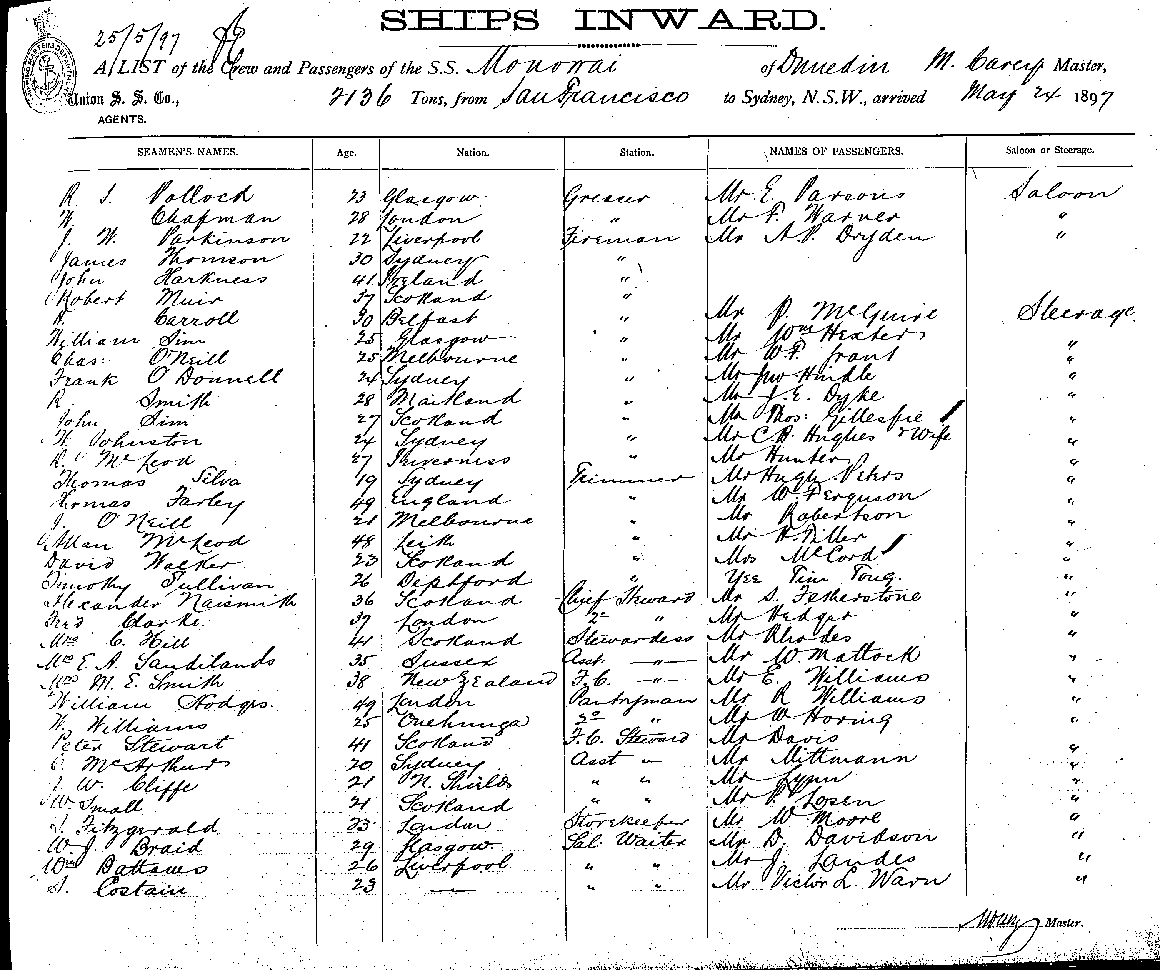 SHIPS INWARD.
25/5/97
A LIST of the Crew and Passengers of the S.S. Monowai of Dunedin M. Carey Master,
Union S. S. Co., 2136 Tons, from San Francisco to Sydney, N.S.W., arrived May 24 1897
AGENTS.
SEAMEN'S NAMES. Age. Nation. Station. NAMES OF PASSENGERS. Saloon or Steerage.
R J. Pollock 23 Glasgow Greaser Mr E. Parsons Saloon
W. Chapman 28 London " Mr F. Warner "
J. W. Parkinson 22 Liverpool Fireman Mr A.P. Dryden "
James Thomson 30 Sydney "
John Harkness 41 Ireland "
Robert Muir 37 Scotland "
R. Carroll 30 Belfast " Mr P. McGuire Steerage
William Sim 25 Glasgow " Mr Wm Hexter "
Chas: O'Neill 25 Melbourne " Mr W.F. Grant "
Frank O'Donnell 24 Sydney " Mr Jno Hindle "
R. Smith 28 Maitland " Mr J.E. Dyke "
John Sim 27 Scotland " Mr Thos: Gillespie "
W. Johnston 24 Sydney " Mr C.H. Hughes & Wife "
R. McLeod 27 Inverness " Mr Hunter "
Thomas Silva 19 Sydney Trimmer Mr Hugh Peters "
Thomas Farley 49 England " Mr W. Ferguson "
J. O'Neill 21 Melbourne " Mr Robertson "
Allan McLeod 48 Leith " Mr H. Piller "
David Walker 23 Scotland " Mrs McCord "
Timothy Sullivan 26 Deptford " Yee Tim Toug. "
Alexander Naismith 36 Scotland Chief Steward Mr S. Fetherstone "
Fred Clarke 37 London 2nd " Mr Hedger "
Mrs C. Hill 41 Scotland Stewardess Mr Rhodes "
Mrs E. A. Sandilands 35 Sussex Asst. —"— Mr W. Mattock "
Mrs M. E. Smith 38 New Zealand F.C. —"— Mr E. Williams "
William Hodges. 49 London Pantryman Mr R Williams "
W. Williams 25 Onehunga 2nd " Mr W Horing "
Peter Stewart 41 Scotland F.C. Steward Mr Davis
C. McArthur 20 Sydney Asst " Mr Mittmann "
J. W. Cliffe 21 N. Shields " " Mr Lynn "
W Small 21 Scotland " " Mr P. Losen "
J. Fitzgerald 23 London Storekeeper Mr W Moore "
W. J. Braid 29 Glasgow Sal. Waiter Mr D. Davidson "
Wm Battams 26 Liverpool " " Mr J. Landes "
S. Costain 23 — " " Mr Victor L. Warn "
Master.